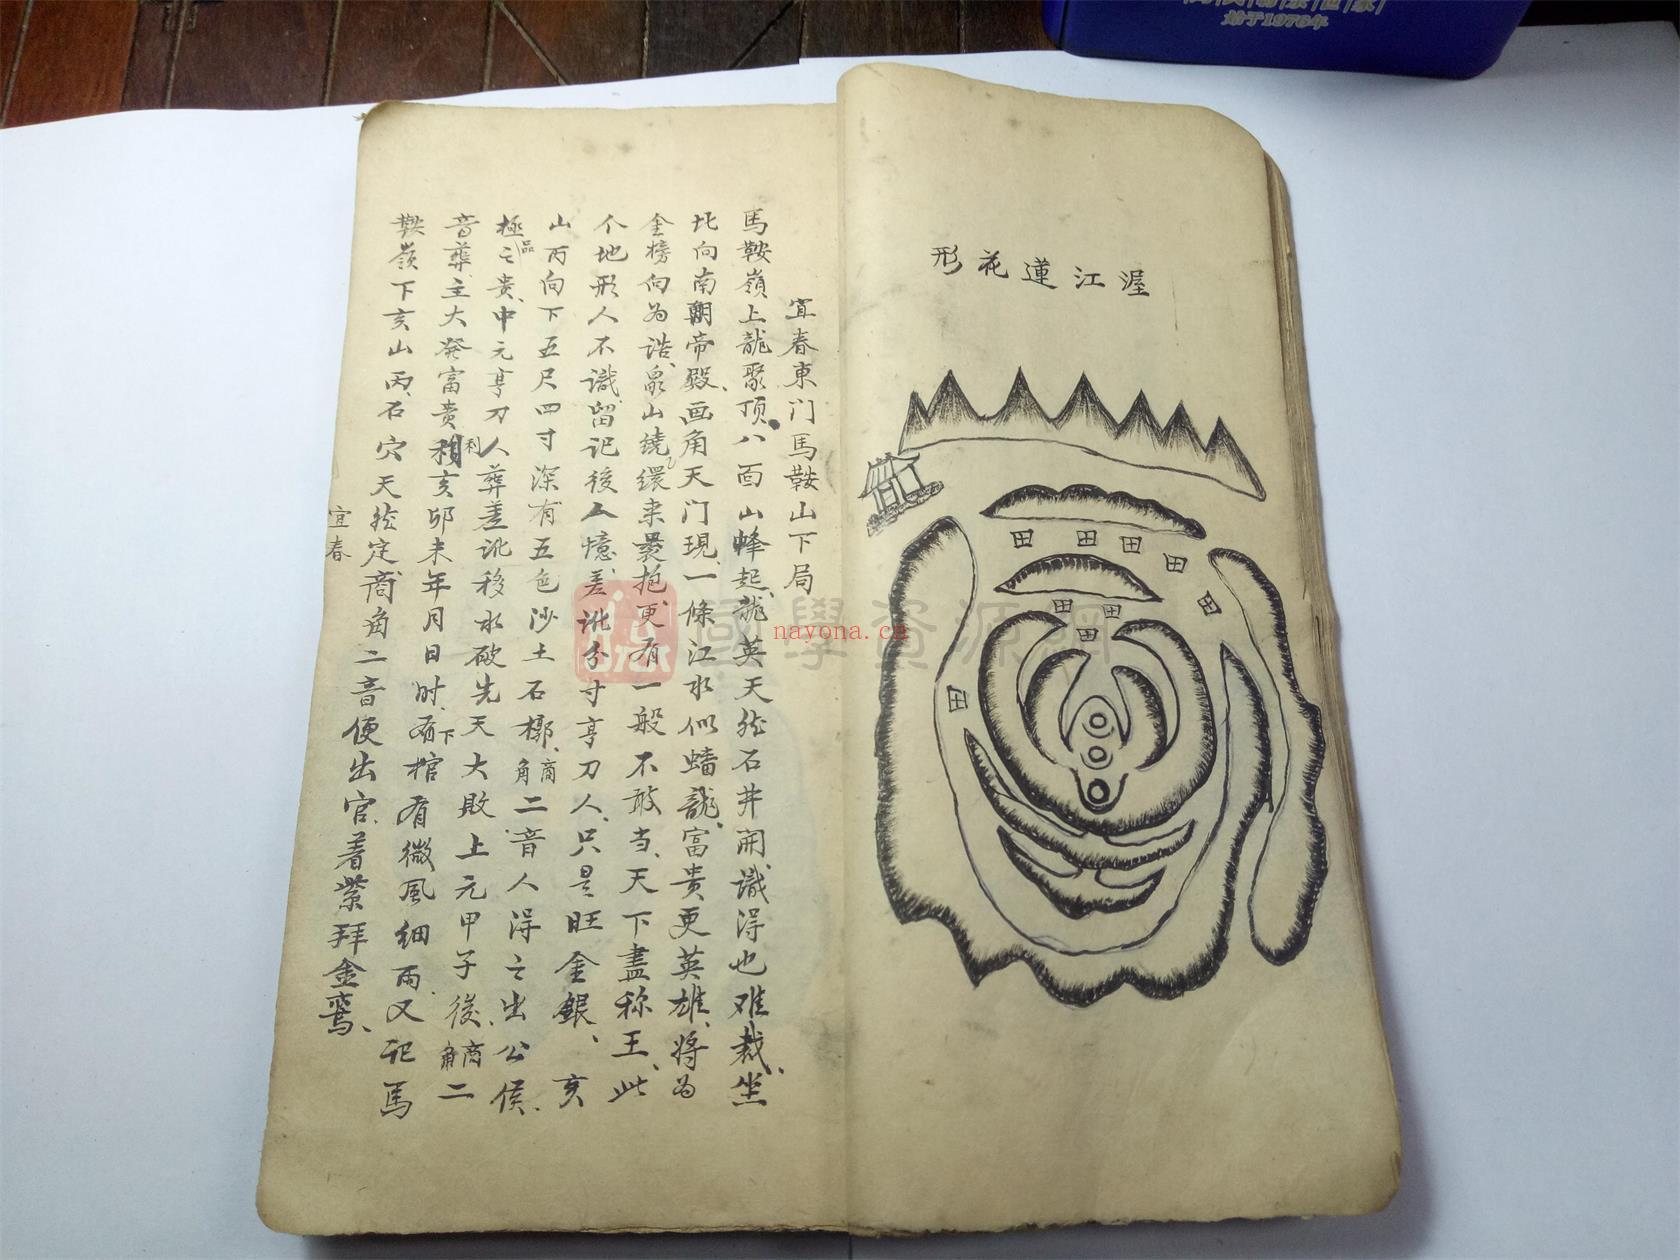 渥江蓮花形
宜春東门馬鞍山下局
馬鞍嶺上龍聚頂、八面山峰起、龍英天然石井開、識得也难裁、坐
北向南朝帝殿、画角天门現、一條江水似蟠龍、富贵更英雄、将为
金榜向为诰、众山繞繯来裹抱、更有一般不敢当、天下盡称王、此
个地形人不識、留记後人憶、差讹分寸亨刀人、只是旺金銀、亥
山丙向下五尺四寸深有五色沙土石槨、商角二音人得之出公侯、
極品之贵、中元亨刀人葬差讹移水破先天大敗上元甲子後、商角二
音葬、主大発富贵利亥卯未年月日时、下棺有微風细雨、又记馬
鞍嶺下亥山丙、石穴天然定、商角二音便出官、着紫拜金鸾、
宜春
始于1976年
國學資源網
nayona.cn